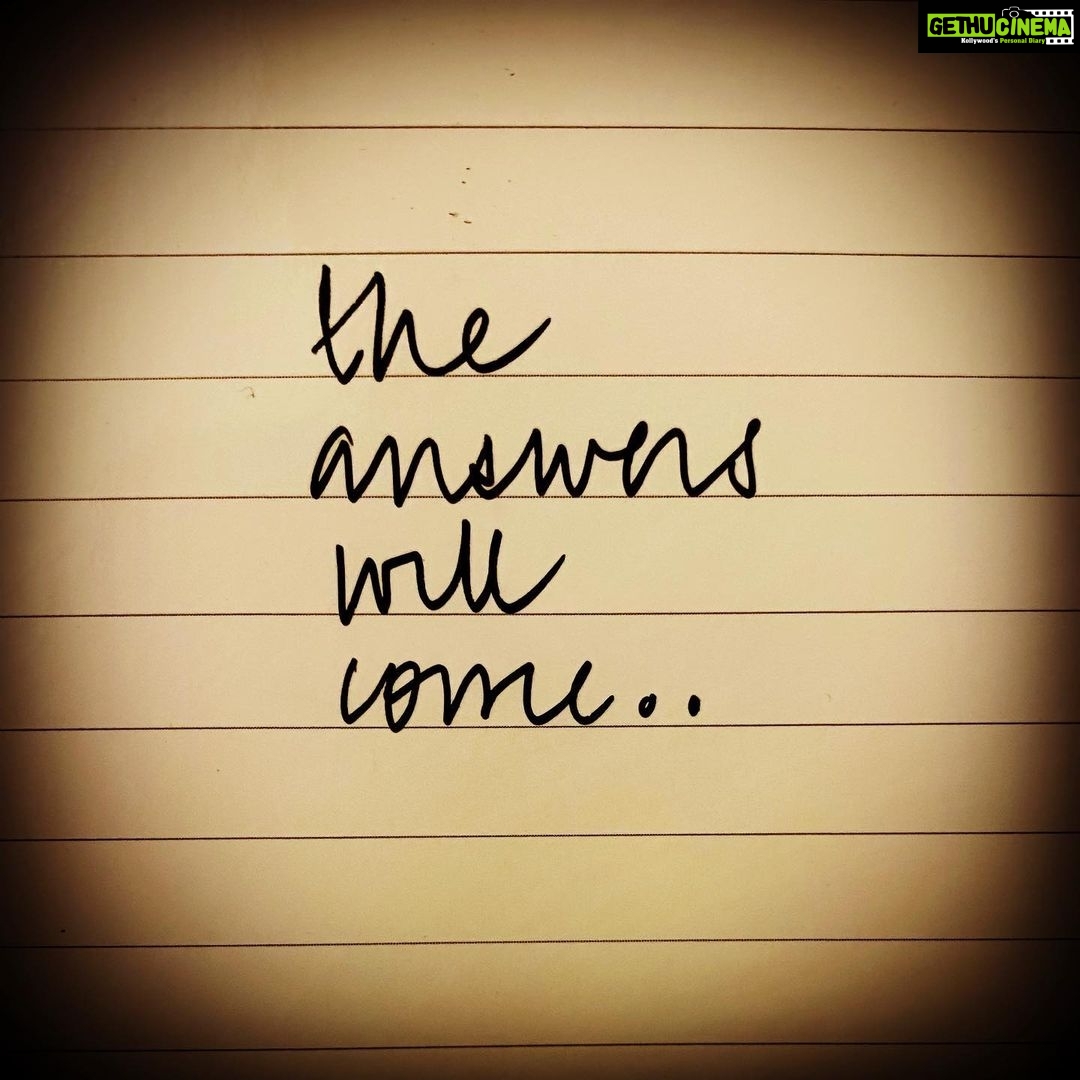 GETHUCINEMA
Kollywood's Personal Diary
the
answers
will
come..